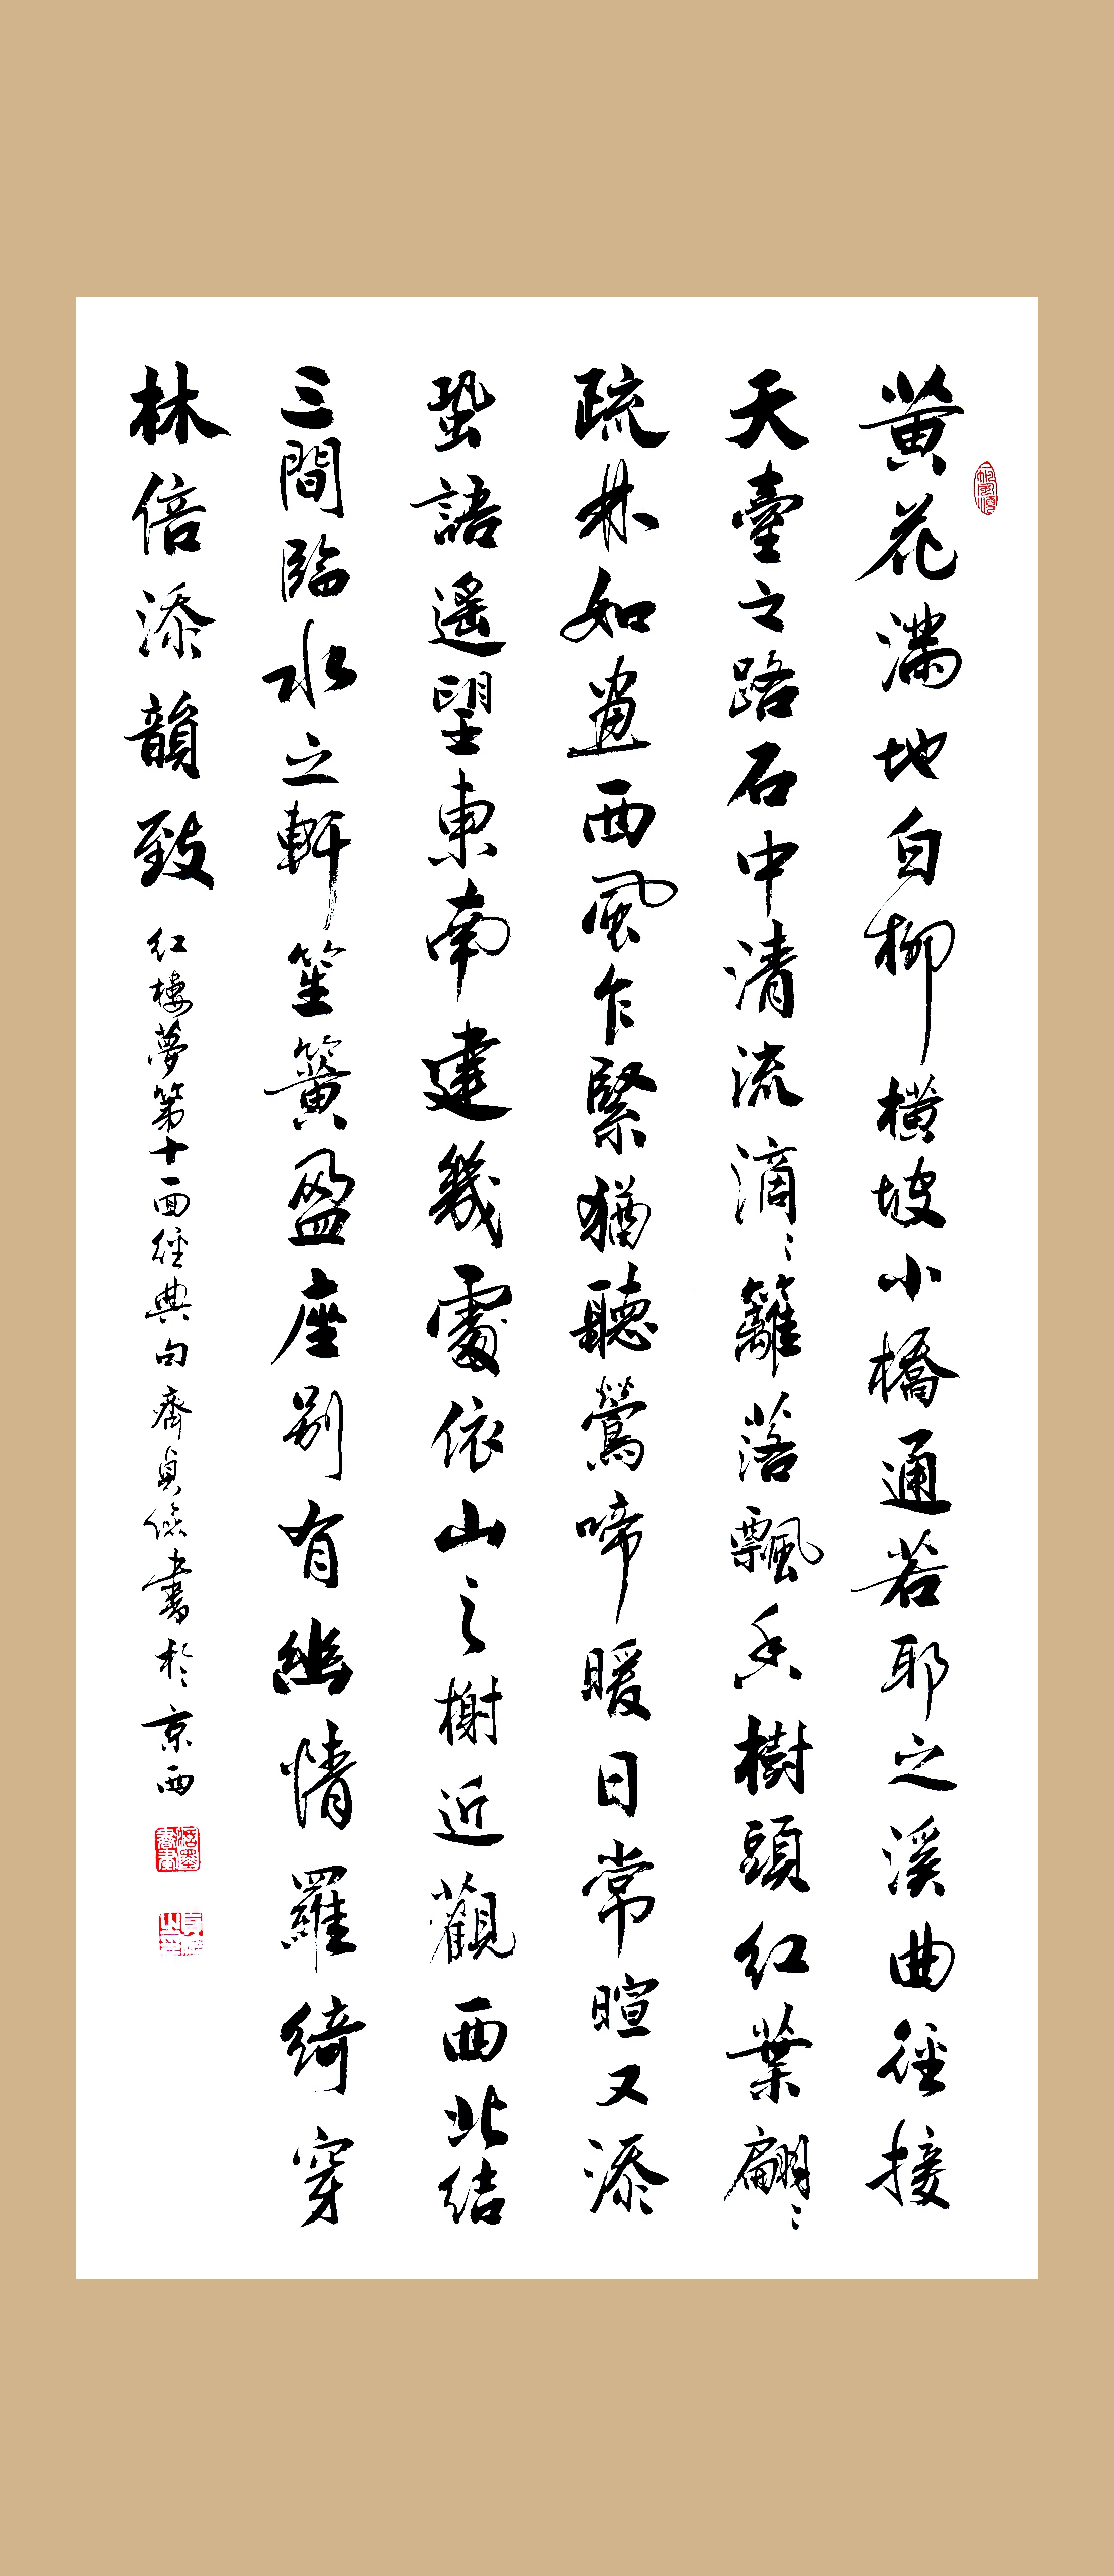 黄花滿地白柳橫坡小橋通若耶之溪曲徑接
天臺之路石中清流滴〻籬落飄香樹頭紅葉翩〻
疏林如畫西風乍緊猶聽鶯啼暖日常暄又添
蛩語遙望東南建幾處依山之榭近觀西北結
三間臨水之軒笙簧盈座別有幽情羅綺穿
林倍添韻致
紅樓夢第十一面經典句齊貞儉書於京西